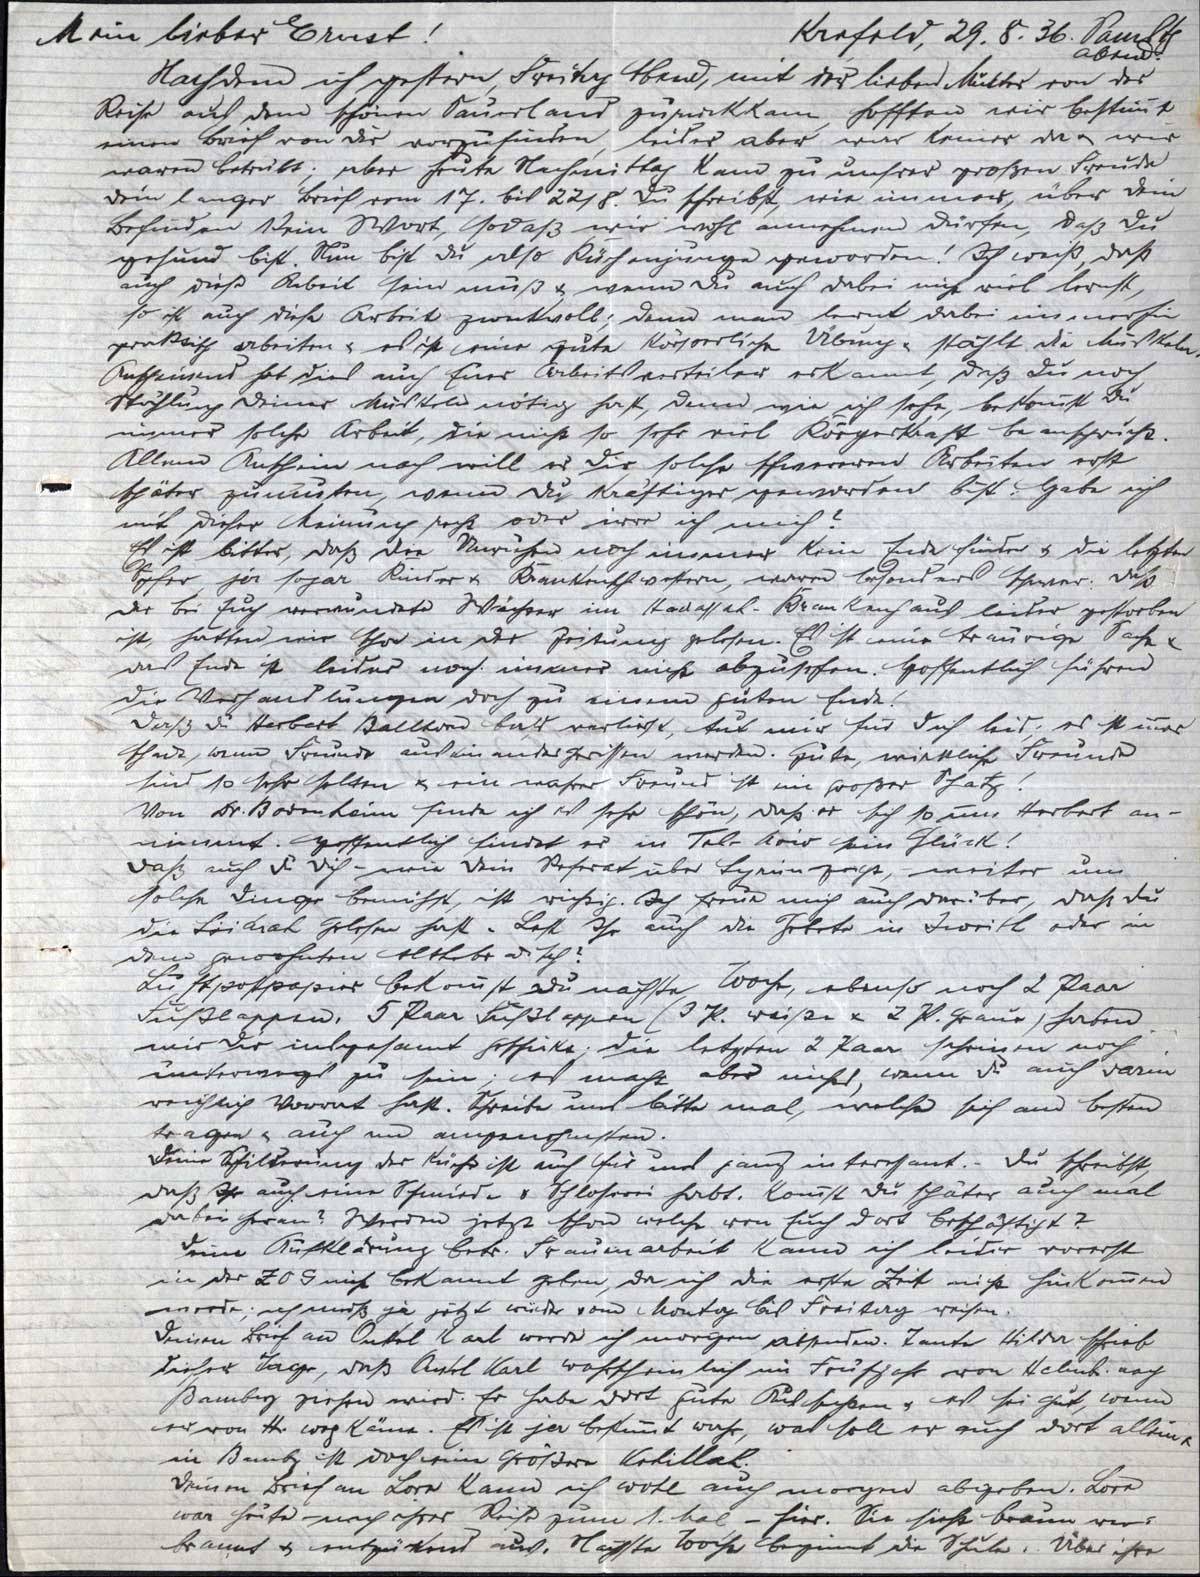 Mein lieber Ernst! Krefeld, 29. 8. 36. Samstg
abend.
Nachdem ich gestern, Freitag Abend, mit der lieben Mutter von der
Reise aus dem schönen Sauerland zurückkam, hofften wir bestimmt
einen Brief von Dir vorzufinden, leider aber war keiner da & wir
waren betrübt; aber heute Nachmittag kam zu unsrer großen Freude
Dein langer Brief vom 17. bis 22/8. Du schreibst, wie immer, über Dein
Befinden kein Wort, sodaß wir wohl annehmen dürfen, daß Du
gesund bist. Nun bist Du also Küchenjunge geworden! Ich weiß, daß
auch diese Arbeit sein muß & wenn Du auch dabei nicht viel lernst,
so ist auch diese Arbeit zweckvoll; denn man lernt dabei immerhin
praktisch arbeiten & es ist eine gute körperliche Übung & stählt die Muskeln.
Anscheinend hat dies auch Euer Arbeitsverteiler erkannt, daß Du noch
Stählung Deiner Muskeln nötig hast, denn wie ich sehe, bekommst Du
immer solche Arbeit, die nicht so sehr viel Körperkraft beansprucht.
Allem Anschein nach will er Dir solche schwereren Arbeiten erst
später zumuten, wenn Du kräftiger geworden bist. Habe ich
mit dieser Meinung recht oder irre ich mich?
Es ist bitter, daß die Unruhen noch immer kein Ende finden & die letzten
Opfer, ja sogar Kinder & Krankenschwestern, waren besonders schwer. Daß
der bei Euch verwundete Wächter im Hadassah-Krankenhaus leider gestorben
ist, hatten wir schon in der Zeitung gelesen. Es ist eine traurige Sache &
das Ende ist leider noch immer nicht abzusehen. Hoffentlich führen
die Verhandlungen doch zu einem guten Ende!
Daß Du Herbert bald verlierst, tut mir für Dich leid; es ist immer
schade, wenn Freunde auseinandergerissen werden. Gute, wirkliche Freunde
sind so sehr selten & ein wahrer Freund ist ein großer Schatz!
Von Dr. Bodenheim finde ich es sehr schön, daß er sich so um Herbert an-
nimmt. Hoffentlich findet er in Tel-Aviv sein Glück!
Daß auch Du Dich – wie Dein Referat über Syrien zeigt, – weiter um
solche Dinge bemühst, ist wichtig. Ich freue mich auch darüber, daß Du
die Sidrah gelesen hast. Lest Ihr auch die Gebete in Iwrith oder in
dem gewohnten althebräisch?
Luftpostpapier bekommst Du nächste Woche, ebenso noch 2 Paar
Fußlappen. 5 Paar Fußlappen (3 P. weiße & 2 P. graue) haben
wir Dir insgesamt geschickt; die letzten 2 Paar scheinen noch
unterwegs zu sein; es macht aber nichts, wenn Du auch darin
reichlich Vorrat hast. Schreibe uns bitte mal, welche sich am besten
tragen & auch am angenehmsten.
Deine Schilderung der Küche ist auch für uns ganz interessant. – Du schreibst,
daß Ihr auch eine Schmiede & Schlosserei habt. Kommst Du später auch mal
dabei heran? Werden jetzt schon welche von Euch dort beschäftigt?
Deine Aufklärung betr. Frauenarbeit kann ich leider vorerst
in der ZOG nicht bekannt geben, da ich die erste Zeit nicht hinkommen
werde; ich muß ja jetzt wieder vom Montag bis Freitag reisen.
Deinen Brief an Onkel Karl werde ich morgen absenden. Tante Hilda schrieb
dieser Tage, daß Onkel Karl wahrscheinlich im Frühjahr von nach
Bamberg ziehen wird. Er habe dort gute Aussichten & es sei gut, wenn
er von H. weg käme. Es ist ja bestimmt wahr, was soll er auch dort allein &
in Bambg ist doch eine größere Kehillah.
Deinen Brief an Lore kann ich wohl auch morgen abgeben. Lore
war heute – nach ihrer Reise zum 1. Mal – hier. Sie sieht braun ver-
brannt & entzückend aus. Nächste Woche beginnt die Schule. Über ihre